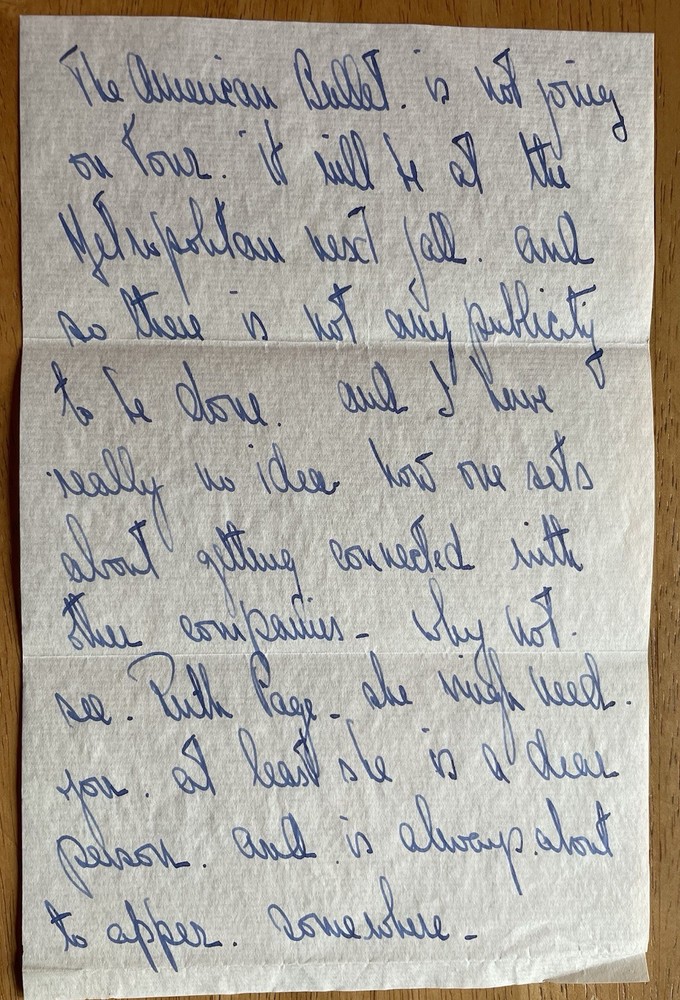 The American Ballet. is not going
on Tour. it will be at the
Metropolitan next fall. and
so there is not any publicity
to be done. and I have
really no idea how one sets
about getting connected with
other companies - why not.
see. Ruth Page - she migh need.
you. at least she is a dear
person. and is always.about
to apper. somewhere -